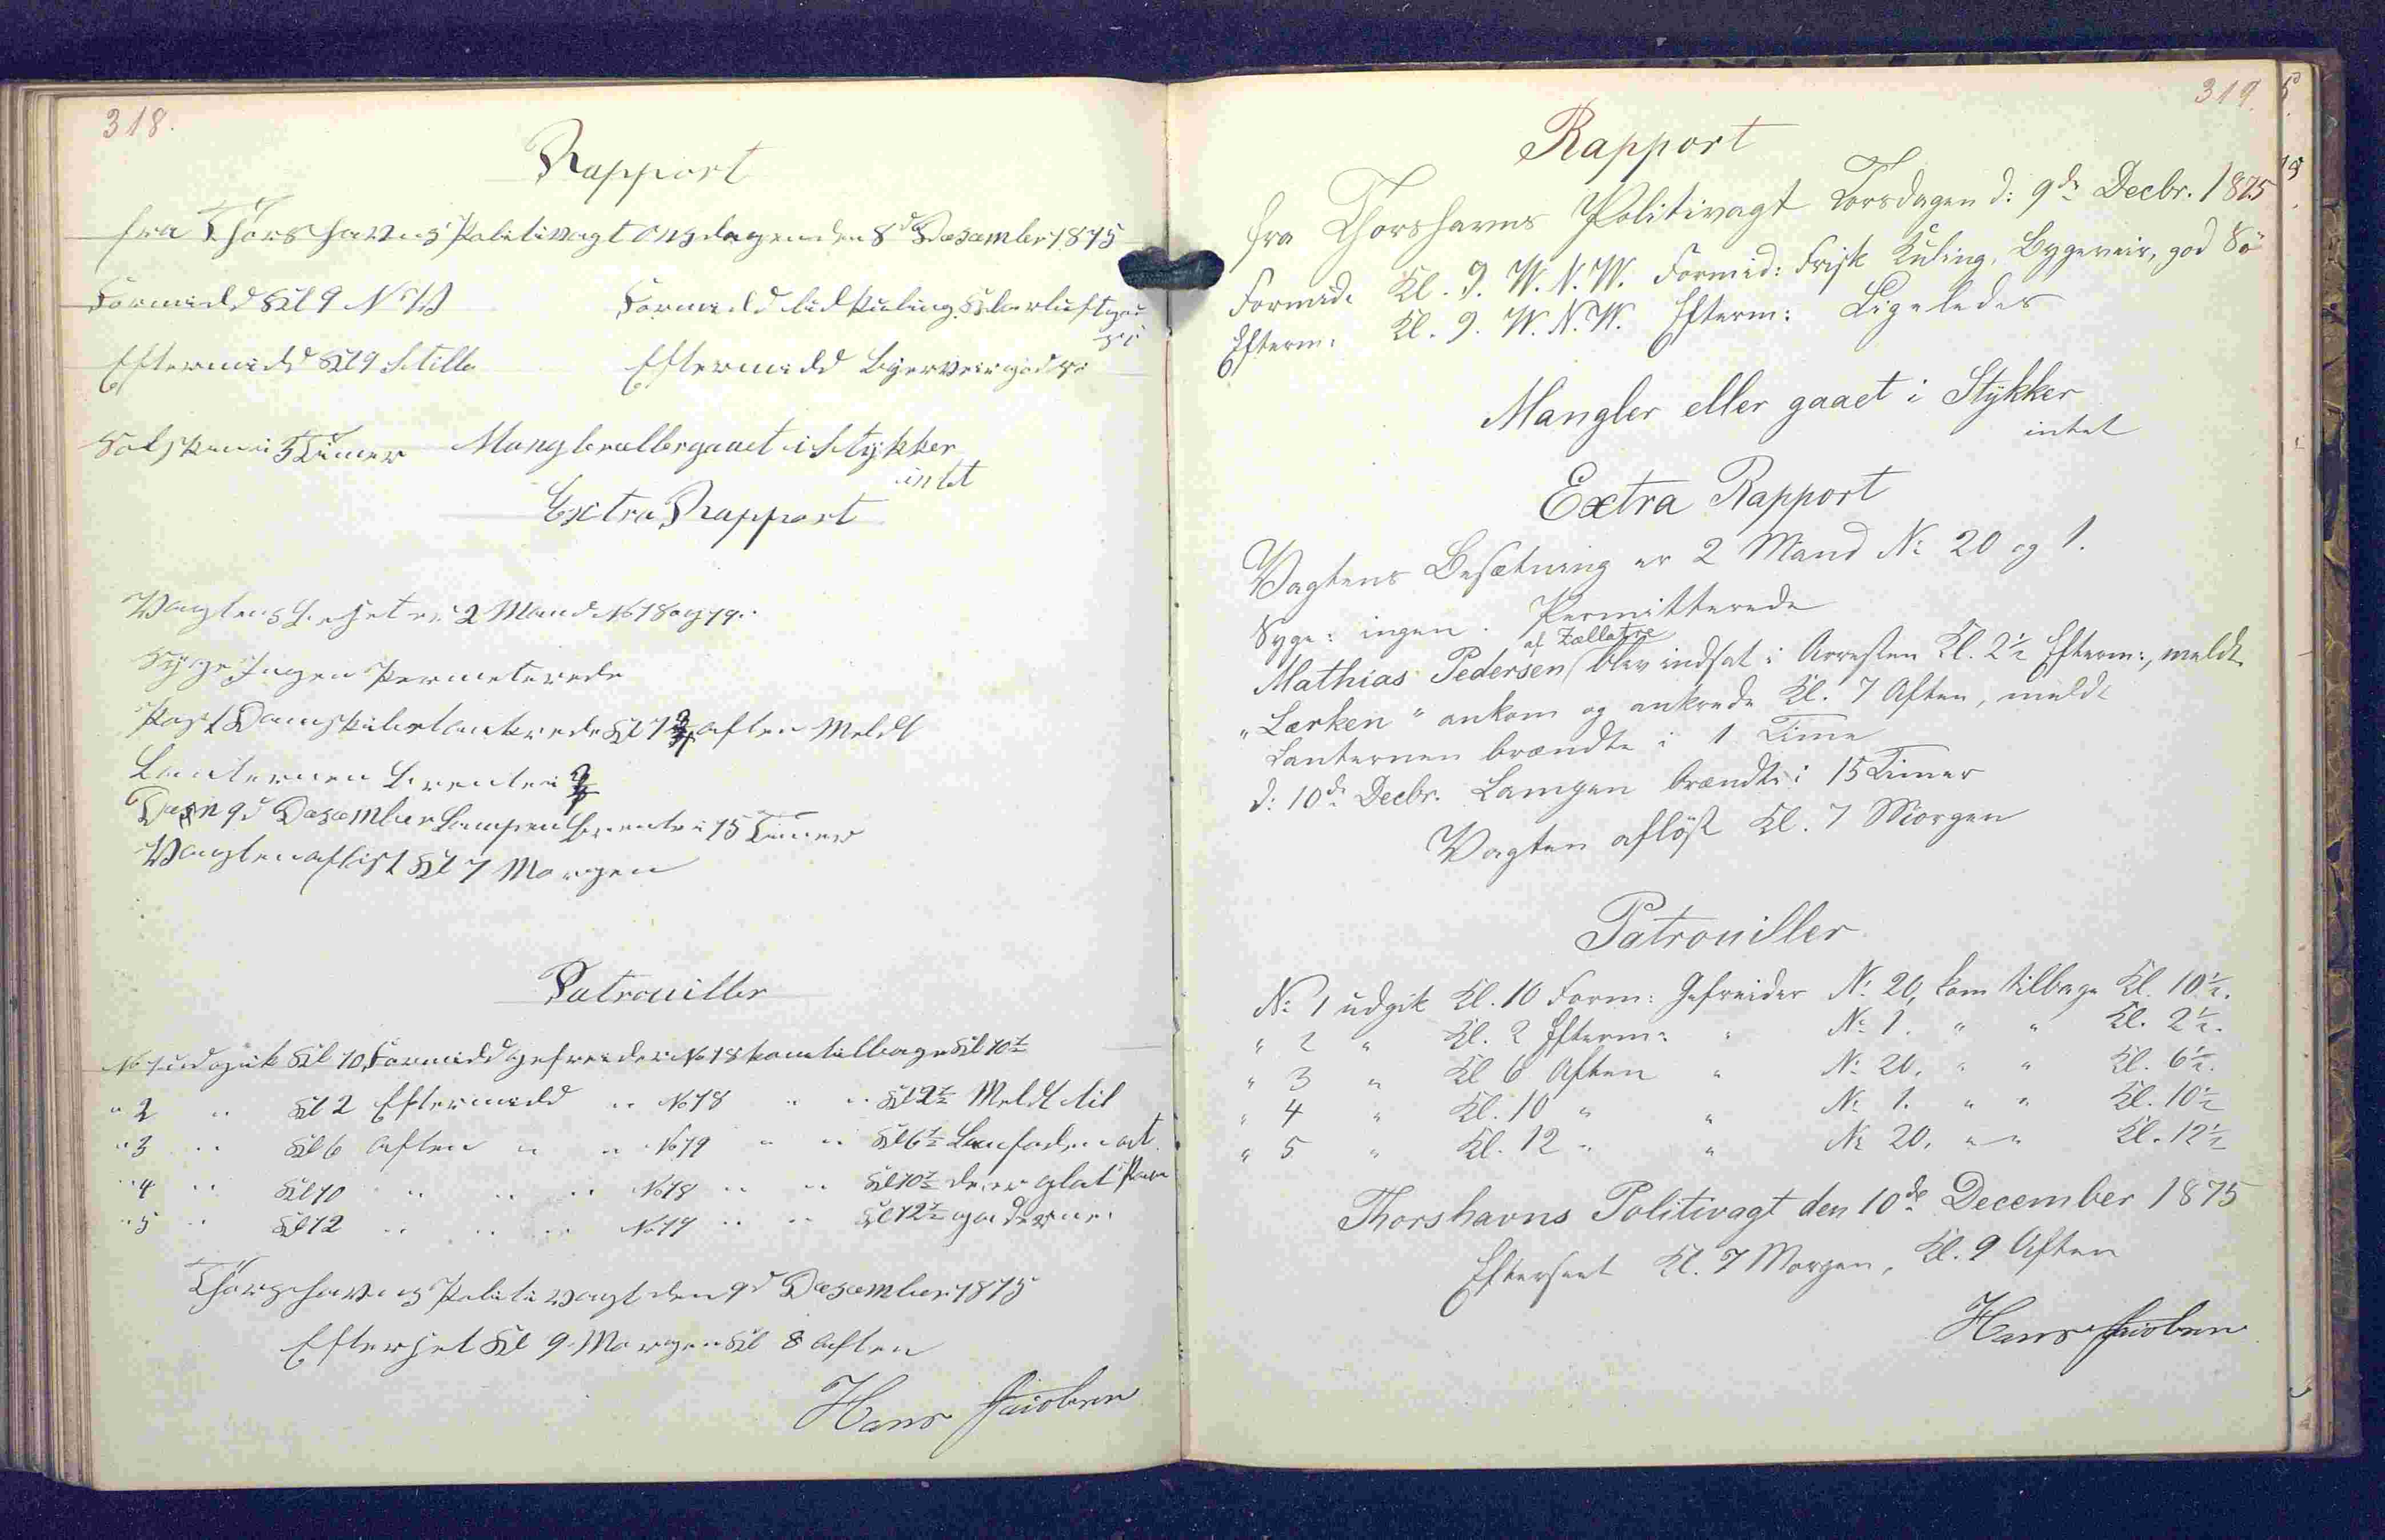 318.
Rapport
fra Thorshavns Politivagt Onsdagen den 8d Desember 1875
Formidd Kl 9 N W
Formidd lidt Kuling Klar luft god
Sö
Eftermidd Kl 9 Stille
Eftermidd Byerveir god Sö
Solsken i 3 Timer Mangler eller gaaet i Stykker
intet
Extra Rapport
Vagtens Besetn: 2 Mand No 18 og 19.
Syge Ingen Permeterede
Post Damskibet ankrede Kl 7 3/4 aften Meldt
Lanternen brente i 3/4
Den 9d Desember Lampen brente i 15 Timer
Vagten aflöst Kl 7 Morgen
Patrouiller
No 1 udgik Kl 10 Formidd gefreider No 18 kom tilbage Kl 10½
" 2 " Kl 2 Eftermidd " No 18 " " Kl 2½ Meldt til
" 3 " Kl 6 Aften " " No 19 " " Kl 6½ Lanfoden at
" 4 " Kl 10 " " " No 18 " " Kl 10½ der er glat paa
" 5 " Kl 12 " " " No 19 " " Kl 12½ gaderne.
Thorshavns Politivagt den 9d Desember 1875
Efterset Kl 9 Morgen Kl 8 Aften
Hans Jacobsen
319.
Rapport
fra Thorshavns Politivagt Torsdagen d: 9de Decbr. 1875
Formid: Kl. 9. W. N. W. Formid: Frisk Kuling, Bygeveir, god Sö
Efterm: Kl. 9. W. N. W. Efterm: Ligeledes
Mangler eller gaaet i Stykker
intet
Extra Rapport
Vagtens Besætning er 2 Mand No 20 og 1.
Syge: ingen. Permitterede
af Zælletre
Mathias Pedersen blev indsat i Arresten Kl. 2½ Efterm:, meldt
"Lærken" ankom og ankrede Kl. 7 Aften, meldt
Lanternen brændte i 1 Time
d: 10de Decbr. Lampen brændte i 15 Timer
Vagten aflöst Kl. 7 Morgen
Patrouiller
No 1 udgik Kl. 10 Form: Gefreider No 20, kom tilbage Kl. 10½.
" 2 " Kl. 2 Efterm: " No 1. " " Kl. 2½.
" 3 " Kl 6 Aften " No 20. " " Kl. 6½.
" 4 " Kl. 10 " " No 1. " " Kl. 10½
" 5 " Kl. 12 " " No 20. " " Kl. 12½
Thorshavns Politivagt den 10de December 1875
Efterseet Kl. 7 Morgen, Kl. 9 Aften
Hans Jacobsen